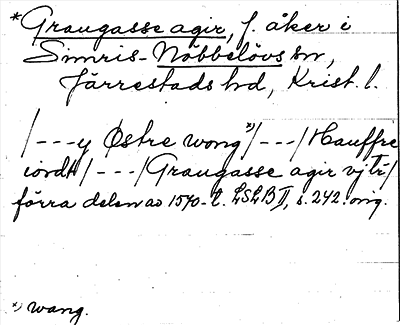 *Graugasse agir, f. åker i
Simris-Nöbbelövs sn,
Järrestads hd, Krist. l.
/---y Østre wong x)/---/Hauffre
iordt/---/Graugasse agir vj tr/
förra delen av 1570-t. LSLB II, s. 242. orig.
x) wang.